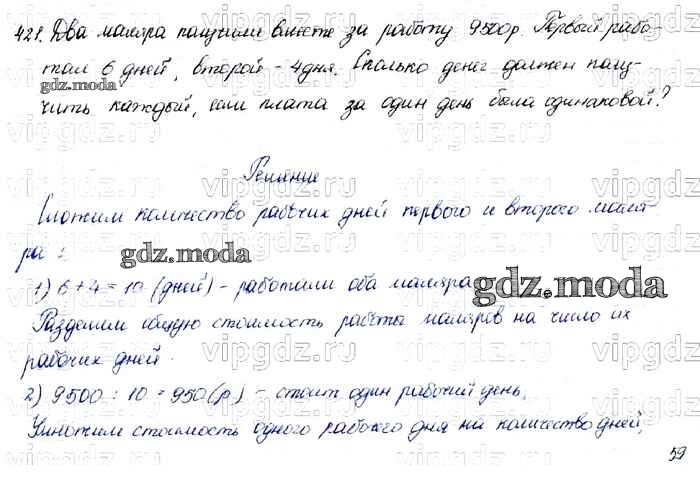 421. Два маляра получили вместе за работу 9500р. Первый рабо-
тал 6 дней, второй - 4дня. Сколько денег должен полу-
gdz.moda
чить каждый, если плата за один день была одинаковой?
vipgdz.ru vipgdz.ru vipgdz.ru
Решение
vipgdz.ru vipgdz.ru vipgdz.ru
Сложим количество рабочих дней первого и второго маля-
ра:
gdz.moda
1) 6+4=10 (дней) - работали оба маляра
gdz.moda
Разделим общую стоимость работы маляров на число их
рабочих дней.
2) 9500 : 10 = 950(р) - стоит один рабочий день.
Умножим стоимость одного рабочего дня на количество дней,
59